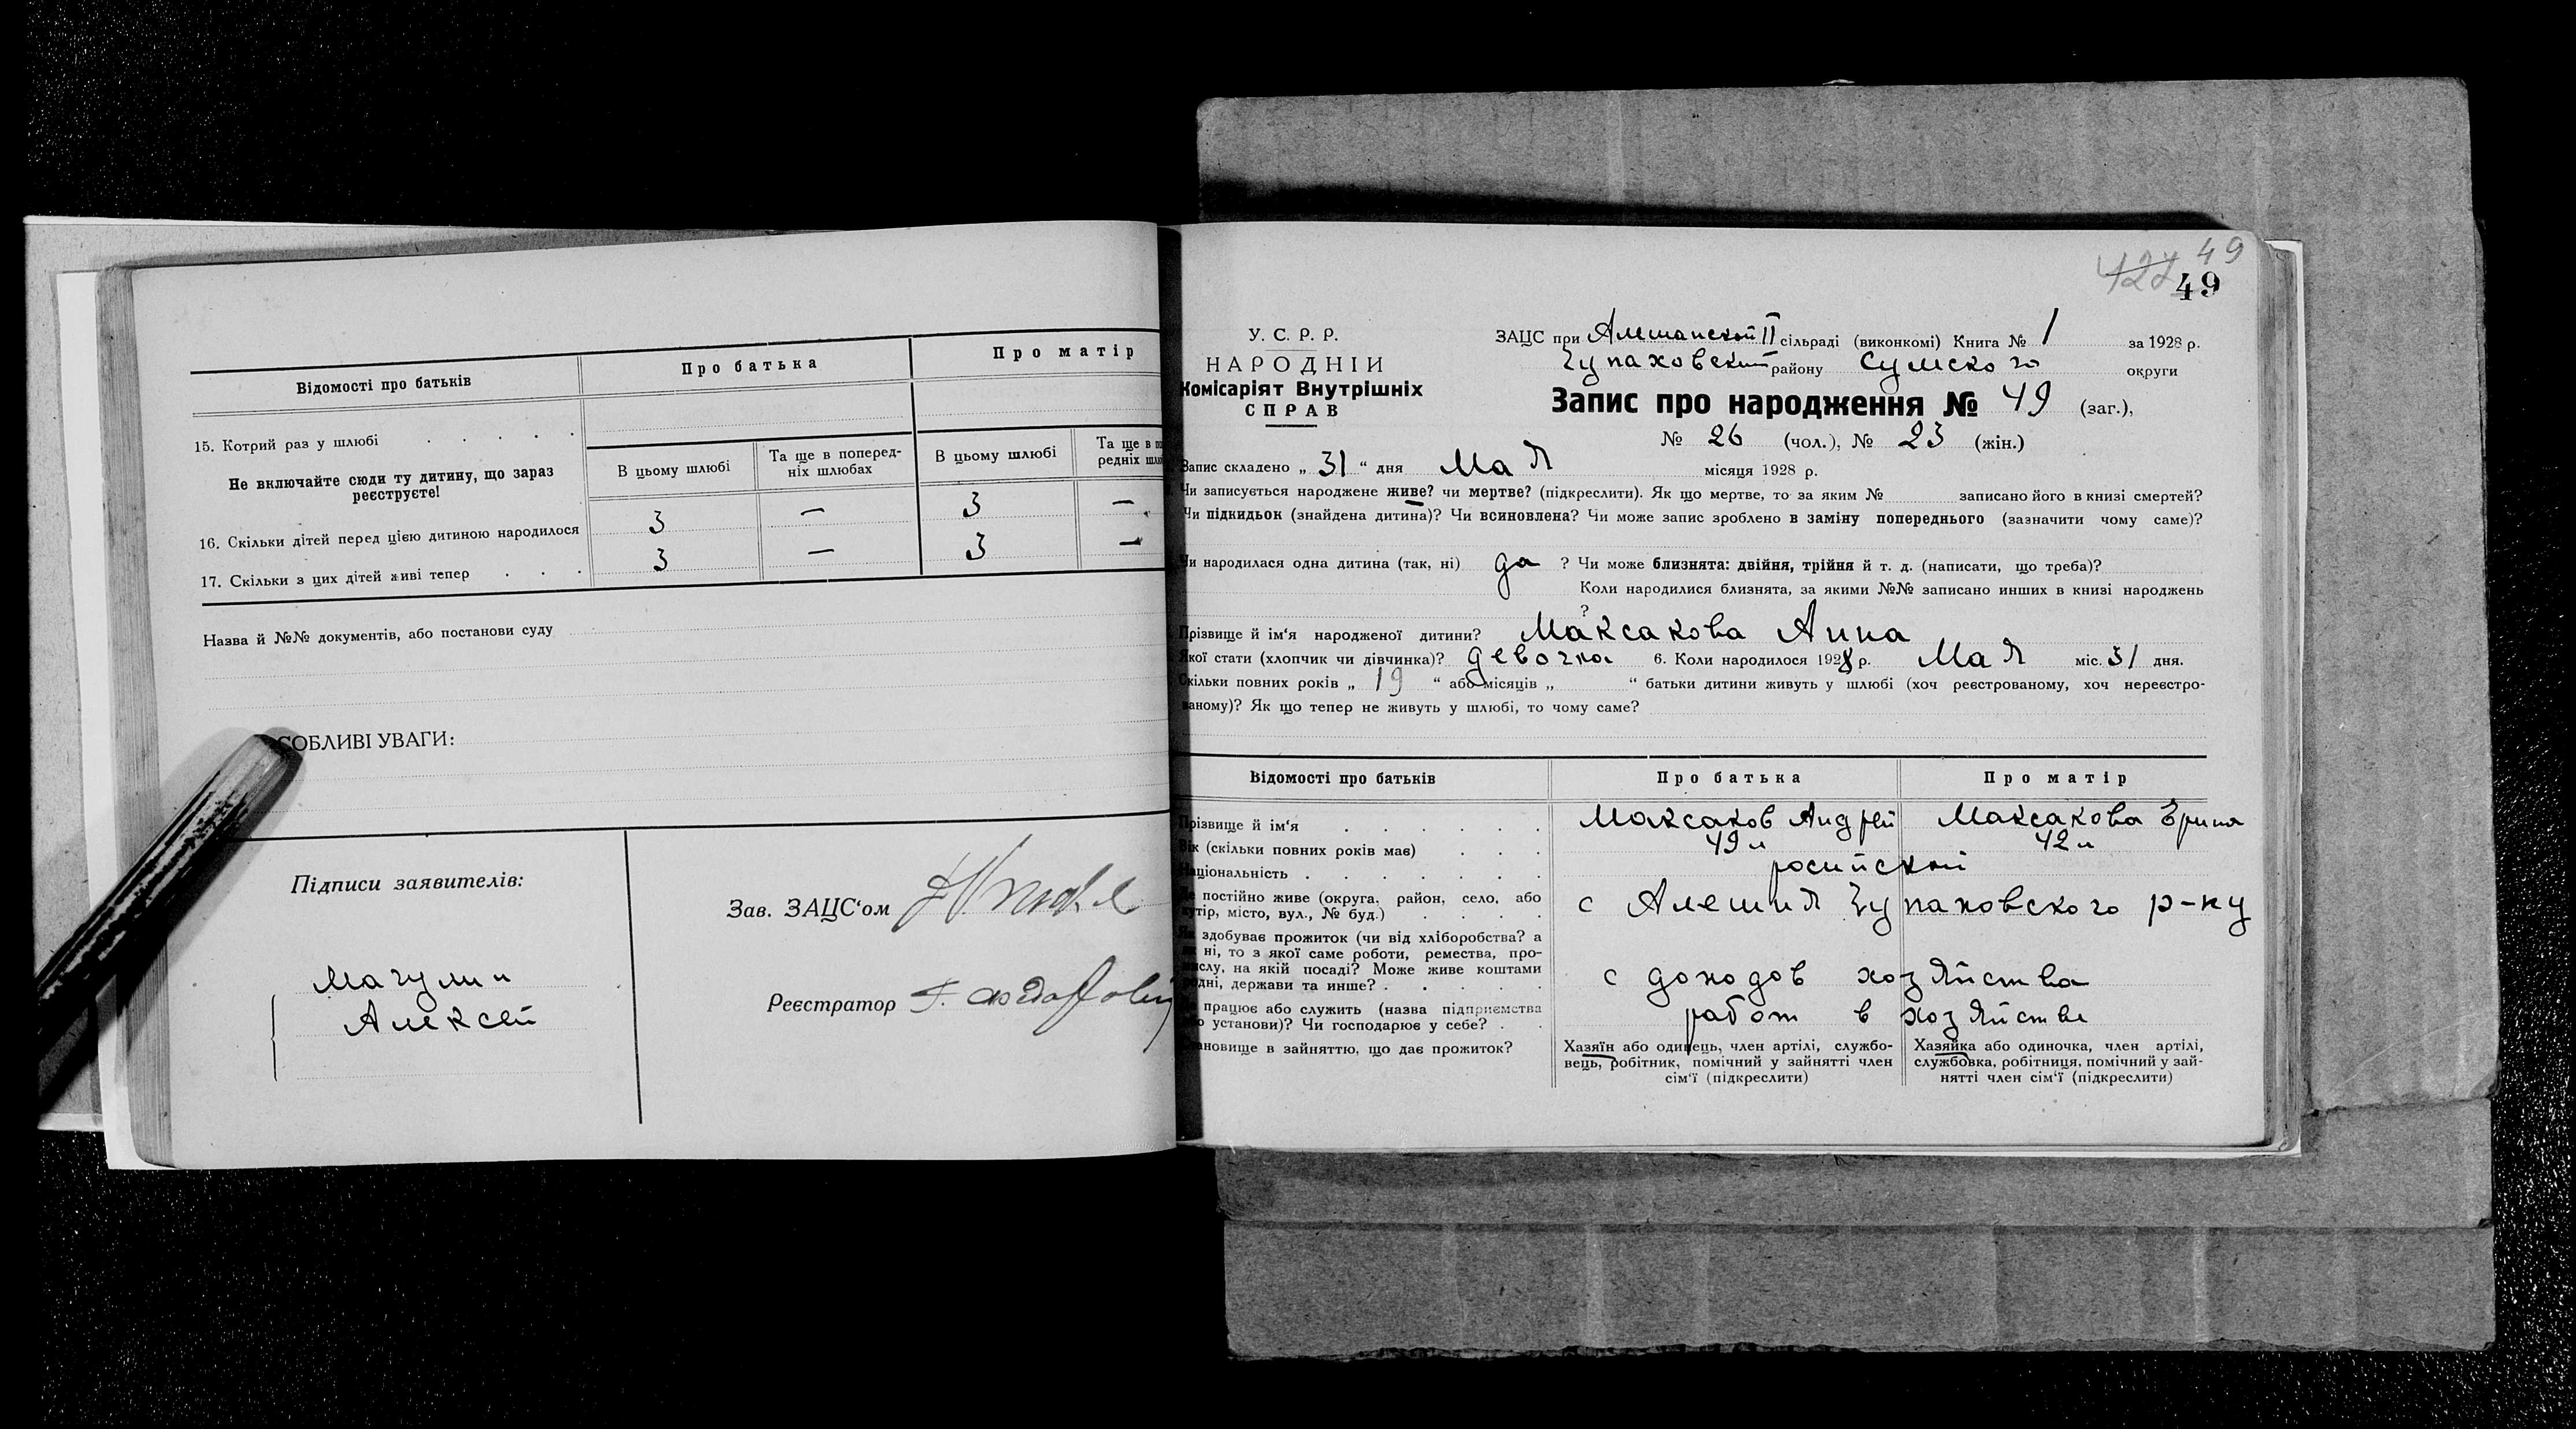 Відомості про батьків
Про батька
Про матір
15. Котрий раз у шлюбі
Не включайте сюди ту дитину, що зараз
реєструєте!
В цьому шлюбі
Та ще в поперед-
ніх шлюбах
В цьому шлюбі
Та ще в по
редніх шлю
16. Скільки дітей перед цією дитиною народилося 3 — 3 —
17. Скільки з цих дітей живі тепер 3 — 3 —
Назва й №№ документів, або постанови суду
СОБЛИВІ УВАГИ:
Підписи заявителів:
Мачулин
Алексей
Зав. ЗАЦС'ом
Реєстратор
427 49
49
У. С. Р. Р.
НАРОДНІИ
Комісаріят Внутрішніх
СПРАВ
ЗАЦС при Алешанской II сільраді (виконкомі) Книга № 1 за 1928 р.
Чупаховский району Сумского округи
Запис про народження № 49 (заг.),
№ 26 (чол.), № 23 (жін.)
Запис складено „ 31 “ дня Мая місяця 1928 р.
Чи записується народжене живе? чи мертве? (підкреслити). Як що мертве, то за яким № записано його в книзі смертей?
Чи підкидьок (знайдена дитина)? Чи всиновлена? Чи може запис зроблено в заміну попереднього (зазначити чому саме)?
Чи народилася одна дитина (так, ні) да ? Чи може близнята: двійня, трійня й т. д. (написати, що треба)?
Коли народилися близнята, за якими №№ записано инших в книзі народжень
?
Прізвище й ім'я народженої дитини? Максакова Анна
Якої стати (хлопчик чи дівчинка)? девочка 6. Коли народилося 1928 р. Мая міс. 31 дня.
Скільки повних років „ 19 “ або місяців „ “ батьки дитини живуть у шлюбі (хоч реєстрованому, хоч нереєстро-
ваному)? Як що тепер не живуть у шлюбі, то чому саме?
Відомості про батьків
Про батька
Про матір
Прізвище й ім'я Максаков Андрей Максакова Ерина
Вік (скільки повних років має) 49 л 42 л
Національність росийской
Де постійно живе (округа, район, село, або
хутір, місто, вул., № буд.)
с Алешня Чупаховского р-ну
Як здобуває прожиток (чи від хліборобства? а
як ні, то з якої саме роботи, ремества, про-
мислу, на якій посаді? Може живе коштами
родні, держави та инше?
с доходов хозяйства
працює або служить (назва підприємства
або установи)? Чи господарює у себе?
работ в хозяйстве
Становище в зайняттю, що дає прожиток?
Хазяїн або одинець, член артілі, службо-
вець, робітник, помічний у зайнятті член
сім'ї (підкреслити)
Хазяйка або одиночка, член артілі,
службовка, робітниця, помічний у зай-
нятті член сім'ї (підкреслити)